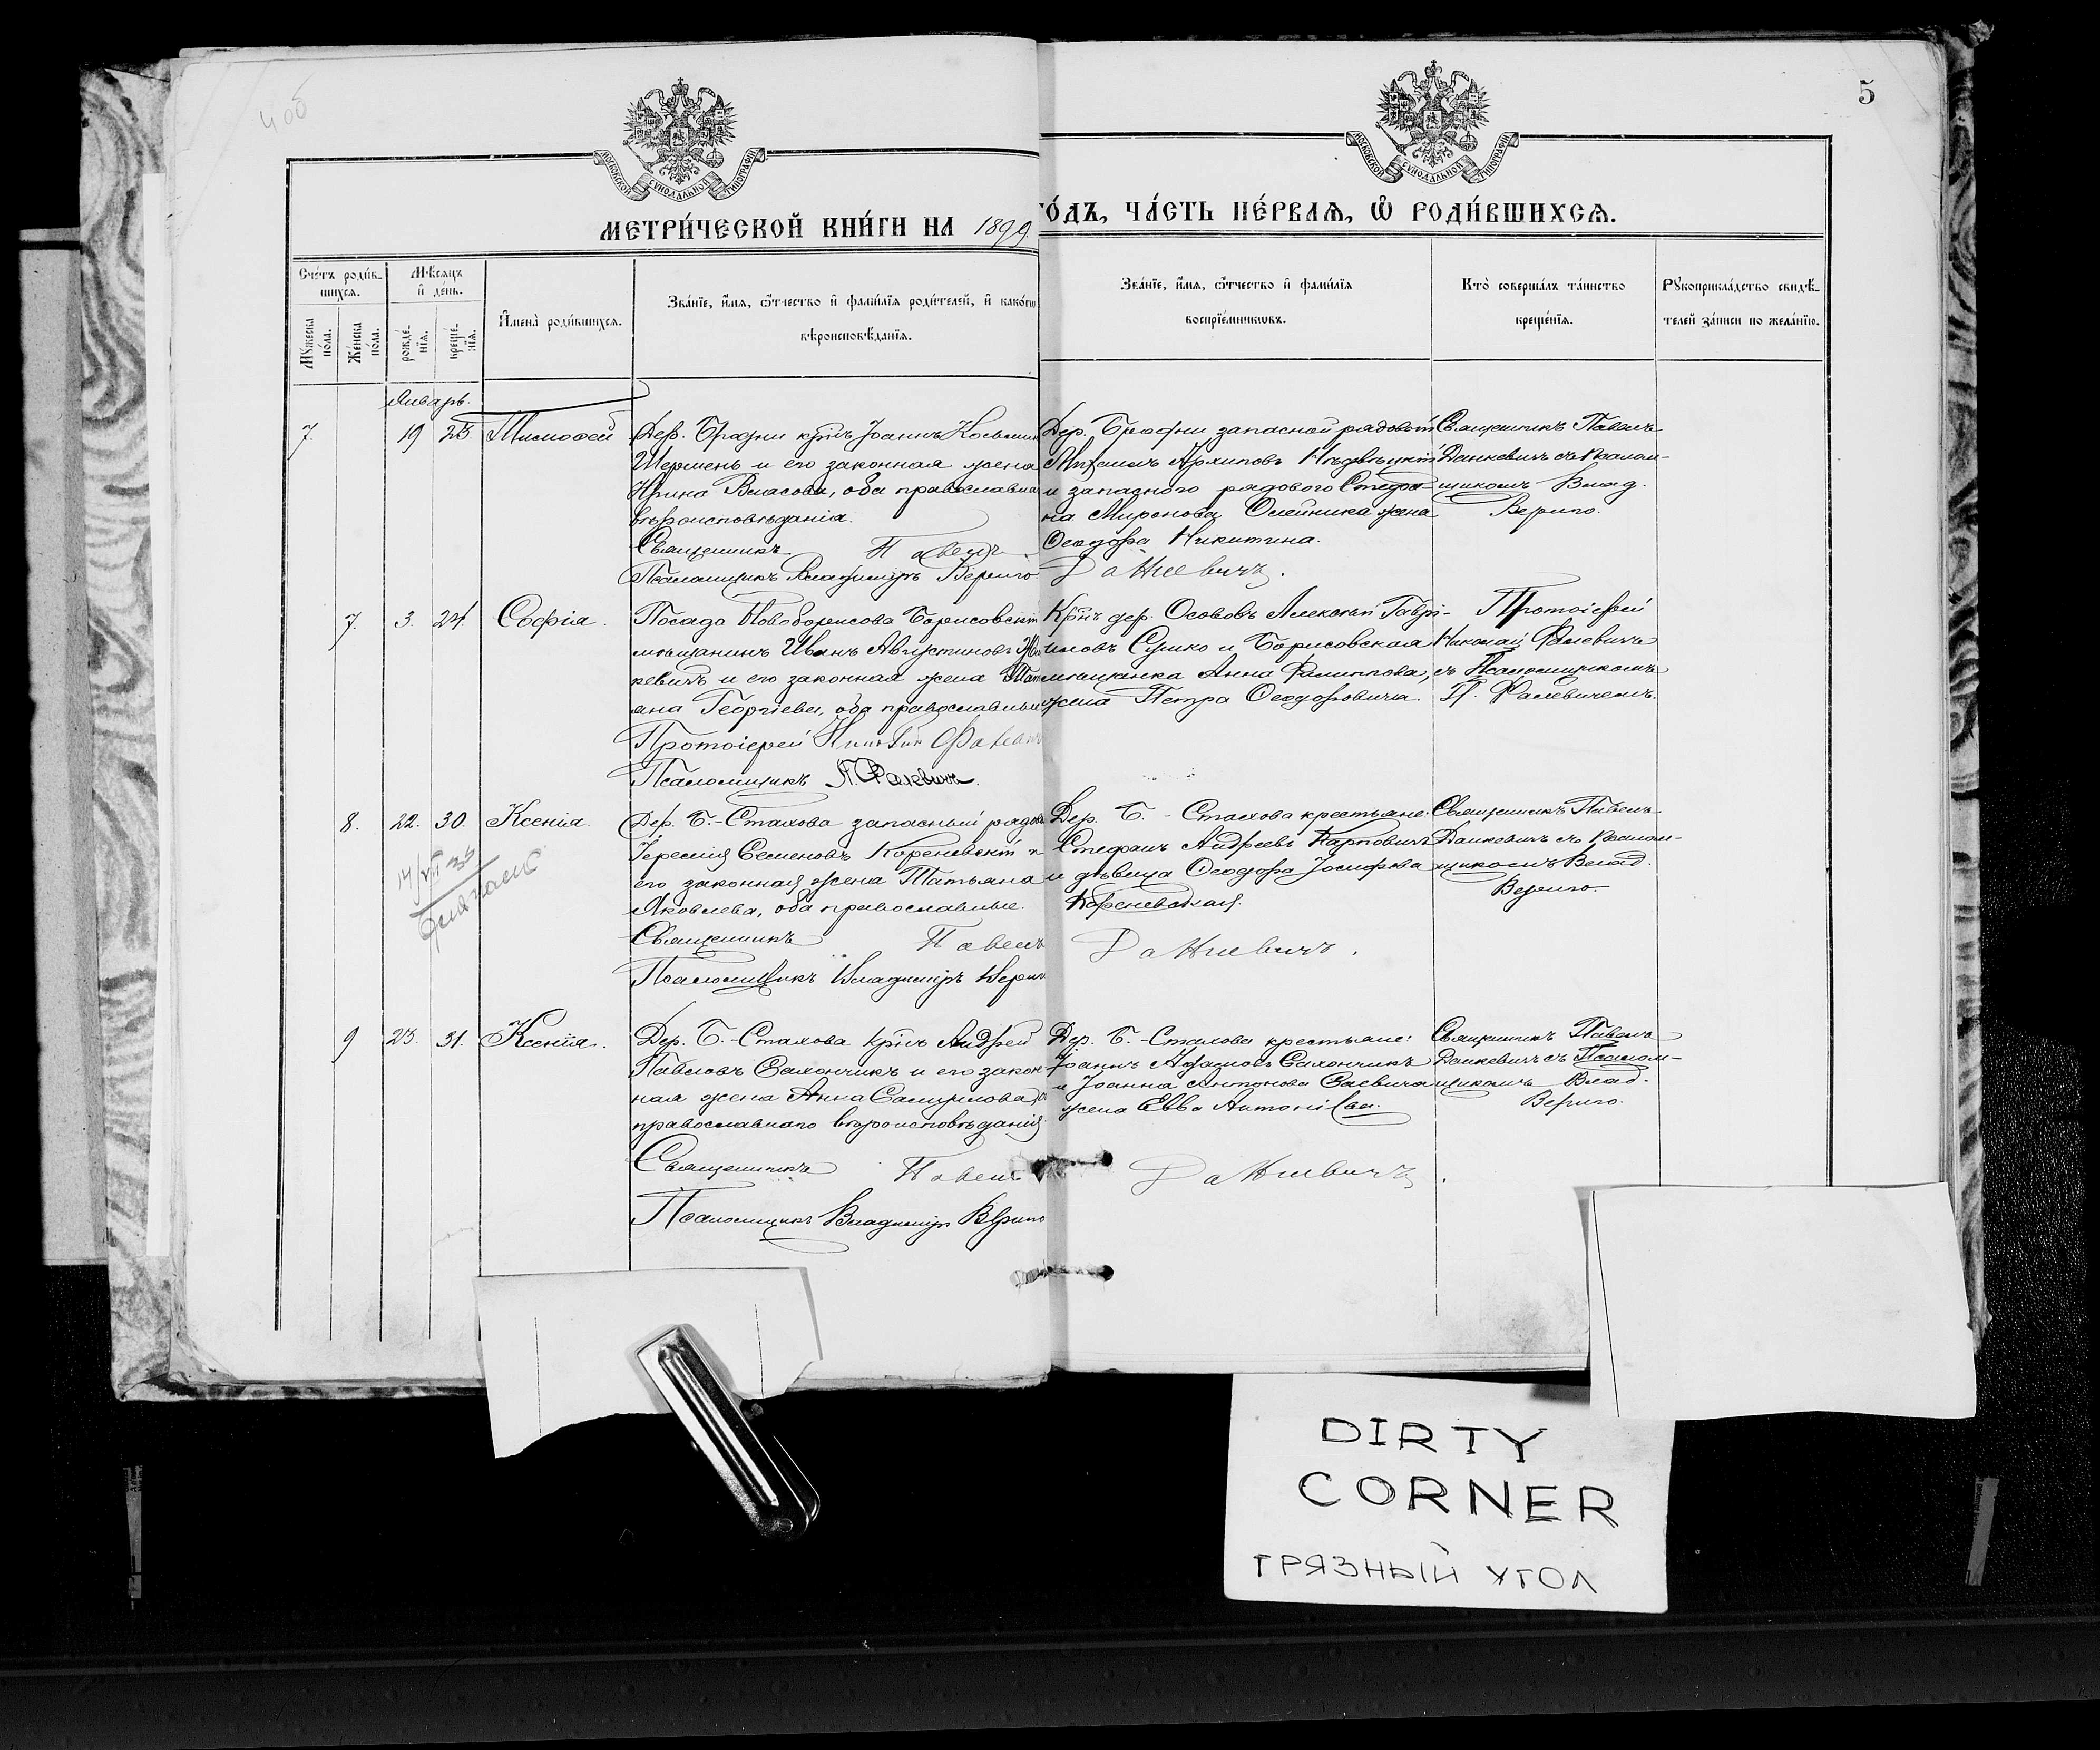 5
МОСКОВСКОЙ СѴНОДАЛЬНОЙ ТИПОГРАФІИ
МОСКОВСКОЙ СѴНОДАЛЬНОЙ ТИПОГРАФІИ
МЕТРИ́ЧЕСКОЙ КНИ́ГИ НА 1899
ГО́ДЪ, ЧА́СТЬ ПЕ́РВАЯ, Ѿ РОДИ́ВШИХСЯ.
Сче́тъ роди́в-
шихся.
Мѣсяцъ
и де́нь.
Мꙋжеска
по́ла.
Же́нска
по́ла.
рожде́-
нїя.
креще́-
нїя.
Имена̀ роди́вшихся.
Зва́нїе, и́мя, ѻ́тчество и фами́лїя роди́телей, и како́гѡ
вѣроисповѣданїя.
Зва́нїе, и́мя, ѻ́тчество и фами́лїя
воспрїе́мникѡвъ.
Кто̀ соверша́лъ та́инство
креще́нїя.
Рꙋкоприкла́дство свидѣ-
телей за́писи по жела́нїю.
Январь.
7. 19 25 Тимофей
Дер. Бродни кр̃нъ Іоаннъ Косьмин
Шермень и его законная жена
Ирина Власова, оба православна
вѣроисповѣданія.
Священникъ Павелъ Данкевичъ.
Псаломщикъ Владиміръ Вериго.
Дер. Бродни запасной рядовой
Архиповъ
и запаснаго рядового Стефа-
на Миронова Олейника жена
Ѳеодора Никитина.
Священникъ Павелъ
Данкевичъ съ псалом-
щикомъ Влад.
Вериго.
7. 3. 24. Софія.
Посада Новоборисова Борисовскій
мѣщанинъ Иванъ Августиновъ
кевичъ и его законная жена Тат
яна Георгіева, оба православные
Протоіерей
Псаломщикъ П. Фалевичъ
Кр̃нъ дер. Осововъ Алексѣй Гаврі-
иловъ Сушко и Борисовская
мѣщанка Анна Филиппова,
жена Петра Ѳеодоровича.
Протоіерей
Николай Фалевичъ
съ Псаломщикомъ
П. Фалевичемъ.
8. 22. 30. Ксенія.
Дер. Б.-Стахова запасный рядов
Іеремія Семеновъ Кореневскій и
его законная жена Татьяна
Яковлева, оба православные.
Священникъ Павелъ Данкевичъ.
Псаломщикъ Владиміръ Вериго
Дер. Б.-Стахова крестьяне:
Стефанъ Андреевъ Карповичъ
и дѣвица Ѳеодора Іосифова
Кореневская.
Священникъ Павелъ
Данкевичъ съ псалом-
щикомъ Влад.
Вериго.
9 25. 31. Ксенія.
Дер. Б.-Стахова кр̃нъ Андрей
Павловъ Сахончикъ и его закон
ная жена Анна Самуилова,
православнаго вѣроисповѣданія.
Священникъ Павелъ Данкевичъ.
Псаломщикъ Владиміръ Вериго
Дер. Б.-Стахова крестьяне:
Іоаннъ Сахончикъ
и Іоанна Антонова
жена Евва Антоніева.
Священникъ Павелъ
Данкевичъ съ Псалом-
щикомъ Влад.
Вериго.
DIRTY
CORNER
ГРЯЗНЫЙ УГОЛ